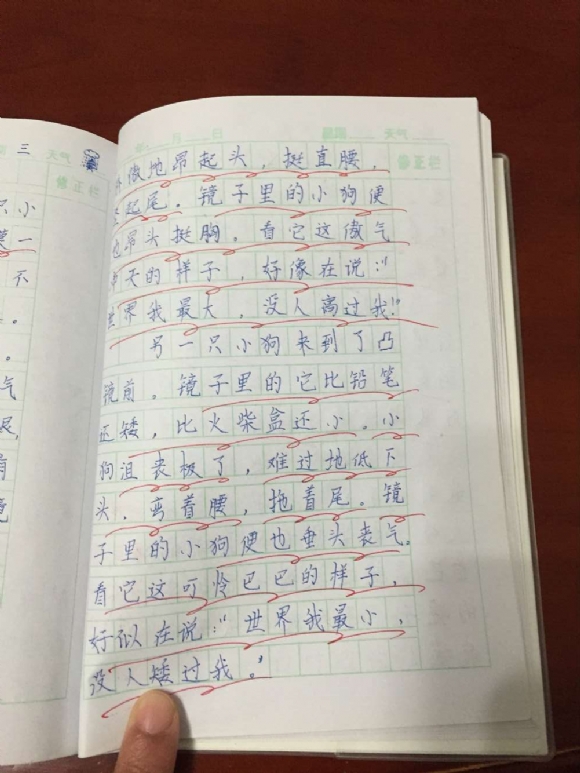 三 天气
年 月 日 星期 天气
修正栏
傲地昂起头，挺直腰，
起尾。镜子里的小狗便
也昂头挺胸。看它这傲气
冲天的样子，好像在说："
世界我最大，没人高过我！"
另一只小狗来到了凸
镜前。镜子里的它比铅笔
还矮，比火柴盒还小。小
狗沮丧极了，难过地低下
头，弯着腰，拖着尾。镜
子里的小狗便也垂头丧气。
看它这可怜巴巴的样子，
好似在说："世界我最小，
没人矮过我。"